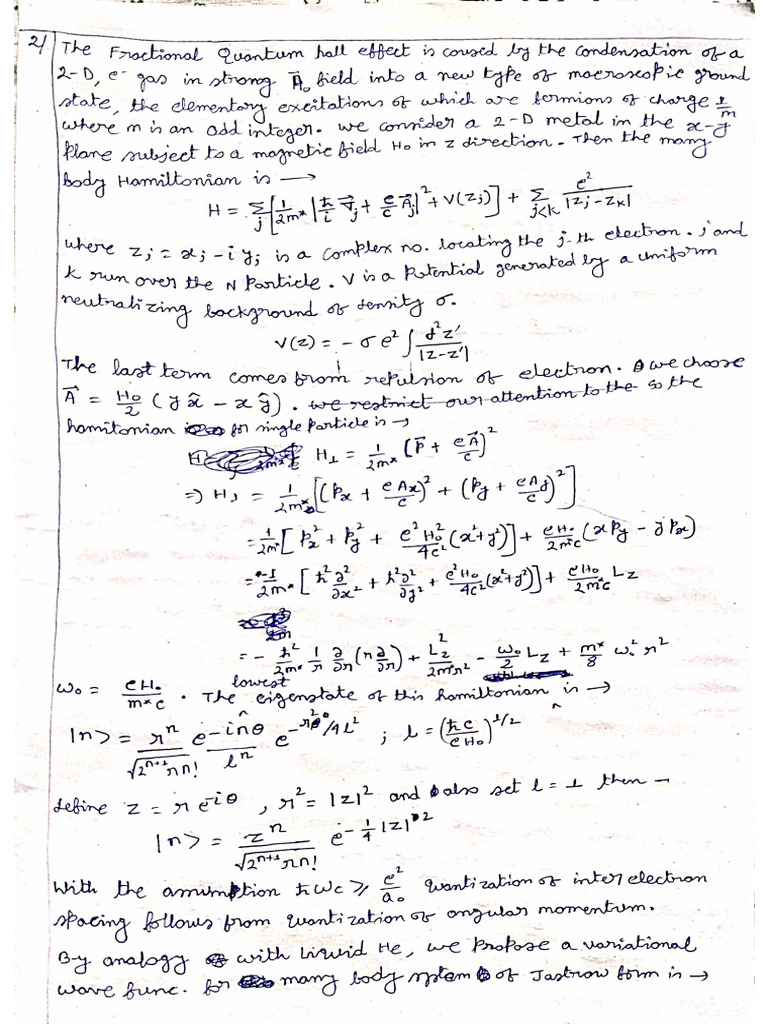 2/ The Fractional Quantum hall effect is caused by the condensation of a
2-D, e⁻ gas in strong A⃗₀ field into a new type of macroscopic ground
state, the elementary excitations of which are fermions of charge 1/m
where m is an odd integer. We consider a 2-D metal in the x-y
Plane subject to a magnetic field H₀ in z direction. Then the many
body Hamiltonian is →
H = Σ_j [1/2m* |ħ/i ∇⃗_j + e/c A⃗_j|² + V(z_j)] + Σ_{j<k} e²/|z_j - z_k|
where z_j = x_j - i y_j is a complex no. locating the j-th electron. j and
k run over the N Particle. V is a Potential generated by a uniform
neutralizing background of density σ.
V(z) = - σ e² ∫ d²z'/|z-z'|
The last term comes from repulsion of electron. we choose
A⃗ = H₀/2 (y x̂ - x ŷ). we restrict our attention to the so the
hamitonian for single particle is →
H⊥ = 1/2m* (P⃗ + eA⃗/c)²
⇒ H⊥ = 1/2m* [(Px + eAx/c)² + (Py + eAy/c)²]
= 1/2m* [Px² + Py² + e²H₀²/4c² (x²+y²)] + eH₀/2m*c (xPy - yPx)
= -1/2m* [ħ²∂²/∂x² + ħ²∂²/∂y² + e²H₀/4c² (x²+y²)] + eH₀/2m*c Lz
= - ħ²/2m* 1/r ∂/∂r (r∂/∂r) + Lz²/2m*r² - ω₀/2 Lz + m*/8 ω₀² r²
ω₀ = eH₀/m*c. The lowest eigenstate of this hamiltonian is →
|n> = rⁿ/√2ⁿ⁺¹πn! e^{-inθ}/lⁿ e^{-r²/4l²} ; l = (ħc/eH₀)^{1/2}
define z = r e^{-iθ}, r² = |z|² and also set l = 1 then →
|n> = zⁿ/√2ⁿ⁺¹πn! e^{-1/4 |z|²}
With the assumption ħωc ≥ e²/a₀ quantization of inter electron
spacing follows from quantization of angular momentum.
By analogy with liquid He, we propose a variational
wave func. for many body system of Jastrow form is →